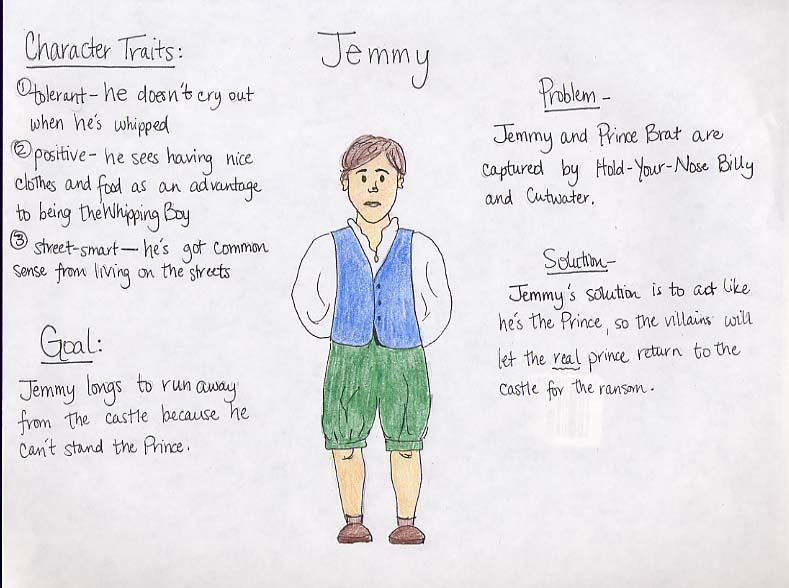 Jemmy
Character Traits:
① tolerant - he doesn't cry out
when he's whipped
② positive - he sees having nice
clothes and food as an advantage
to being the Whipping Boy
③ street-smart - he's got common
sense from living on the streets
Goal:
Jemmy longs to run away
from the castle because he
can't stand the Prince.
Problem -
Jemmy and Prince Brat are
captured by Hold-Your-Nose Billy
and Cutwater.
Solution -
Jemmy's solution is to act like
he's the Prince, so the villains will
let the real prince return to the
castle for the ransom.